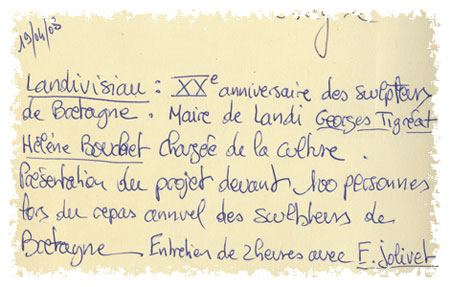 19/04/03
Landivisiau : XXe anniversaire des sculpteurs
de Bretagne. Maire de Landi Georges Tigréat
Hélène Bouchet chargée de la culture.
Présentation du projet devant 100 personnes
lors du repas annuel des sculpteurs de
Bretagne Entretien de 2 heures avec E. Jolivet